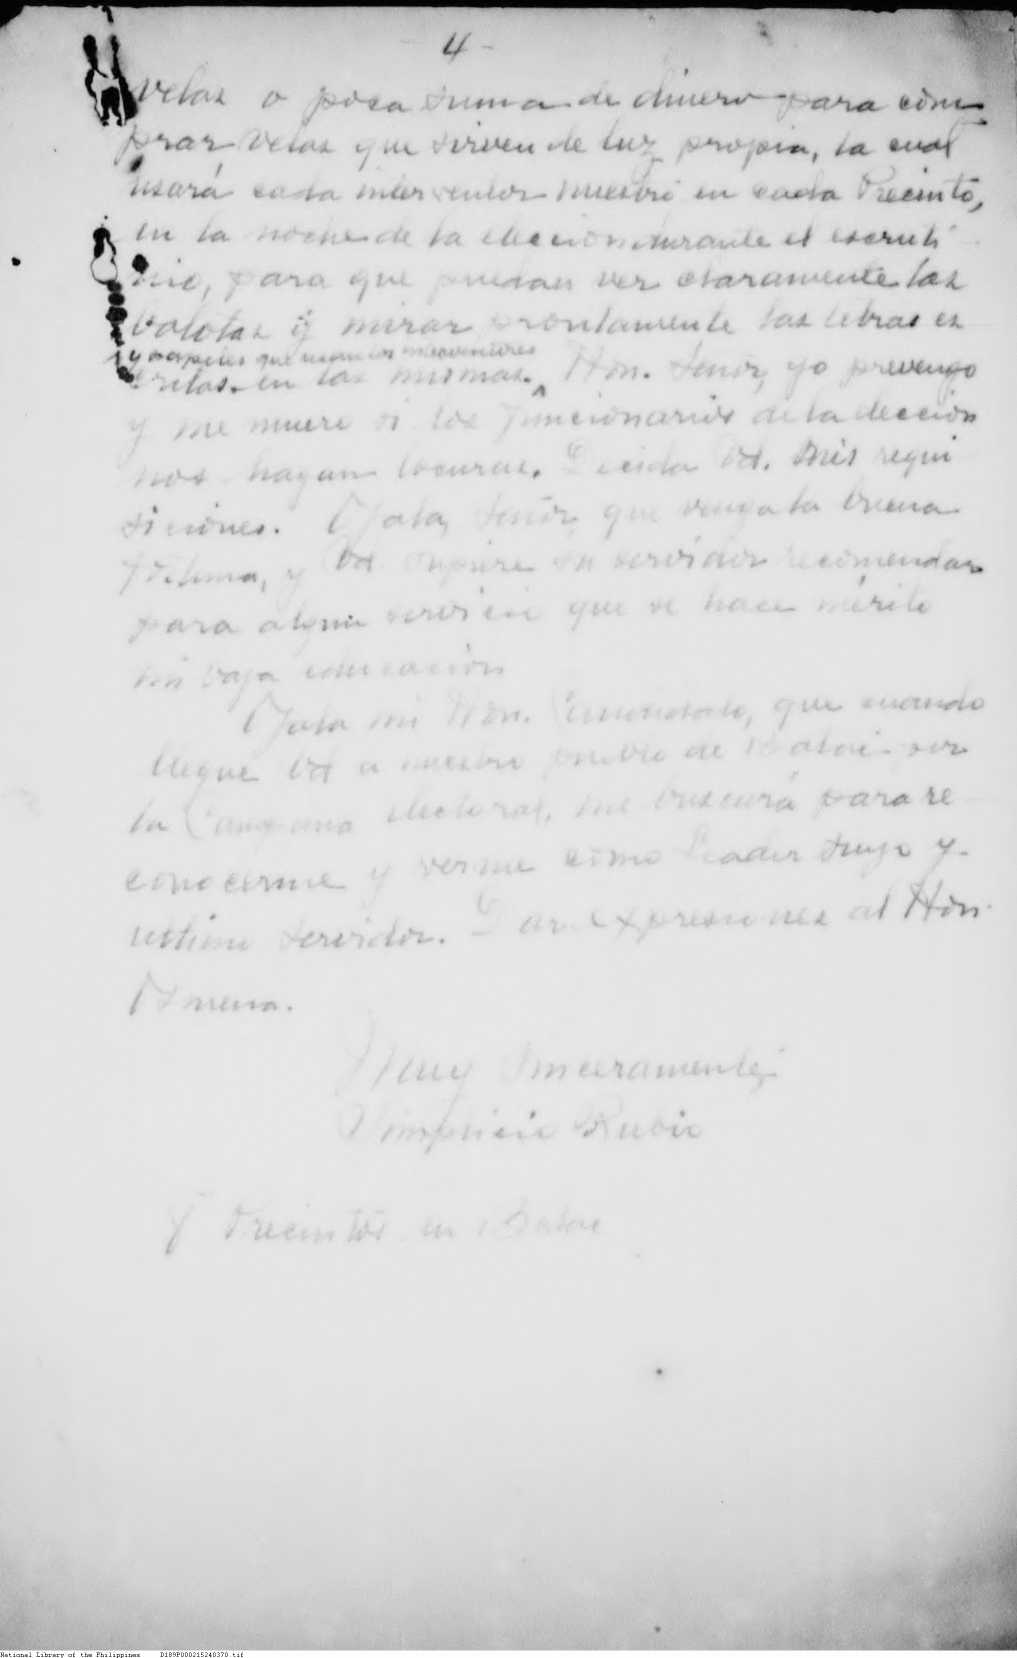 4 -
velas o poca suma de dinero para com
prar velas que sirven de luz propia, la cual
usará cada interventor nuestro en cada Precinto,
en la noche de la eleccion durante el escruti
nio, para que puedan ver claramente las
balotas y mirar prontamente las letras es
y a papeles que usan los interventores
critas en las mismas. Hon. Señor, yo prevengo
y me muero si los funcionarios de la eleccion
nos hagan locuras. Decida Vd. mis requi
siciones. Ojala, Señor, que venga la buena
fortuna, y Vd. su servidor recomendar
para algun servicio que se hace mérito
mi baja educacion
Ojala mi Hon. que cuando
llegue Vd a nuestro pueblo de Batac por
la Campana electoral, me buscará para re
conocerme y verme como Leader suyo y
ultimo servidor. Dar expresiones al Hon.
Osmena.
Muy Sinceramente,
Simplicio Rubio
Precintos en Batac
National Library of the Philippines D189P000215240370.tif